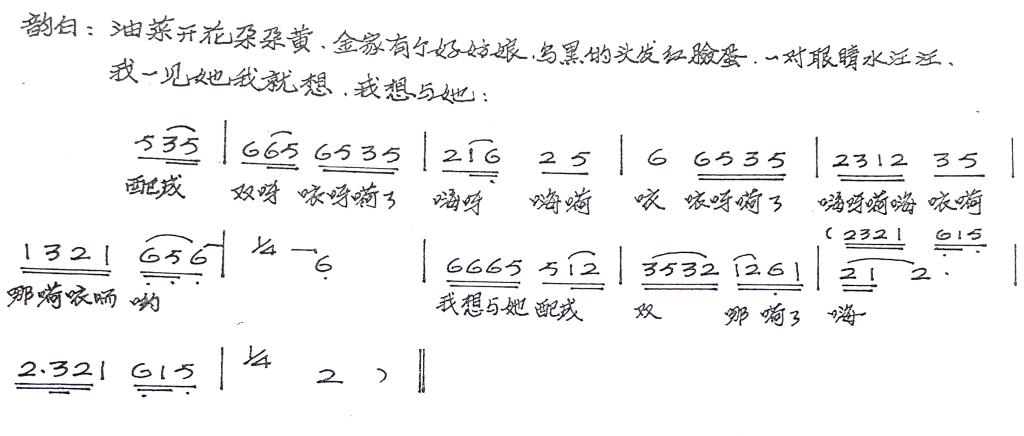 韵白：油菜开花朵朵黄、金家有个好姑娘、乌黑的头发红脸蛋、一对眼睛水汪汪、
我一见她我就想、我想与她：
5 35 | 665 6535 | 216 25 | 6 6535 | 2312 35 |
配成 双呀 咴呀嗬了 嗨呀 嗨嗬 咴 咴呀嗬了 嗨呀嗬嗨 咴嗬
( 2321 615
1321 656 | 1/4 6 | 6665 512 | 3532 1261 | 21 2· |
那嗬咴哂 哟 我想与她 配成 双 那嗬了 嗨
2·321 615 | 1/4 2 ) ‖